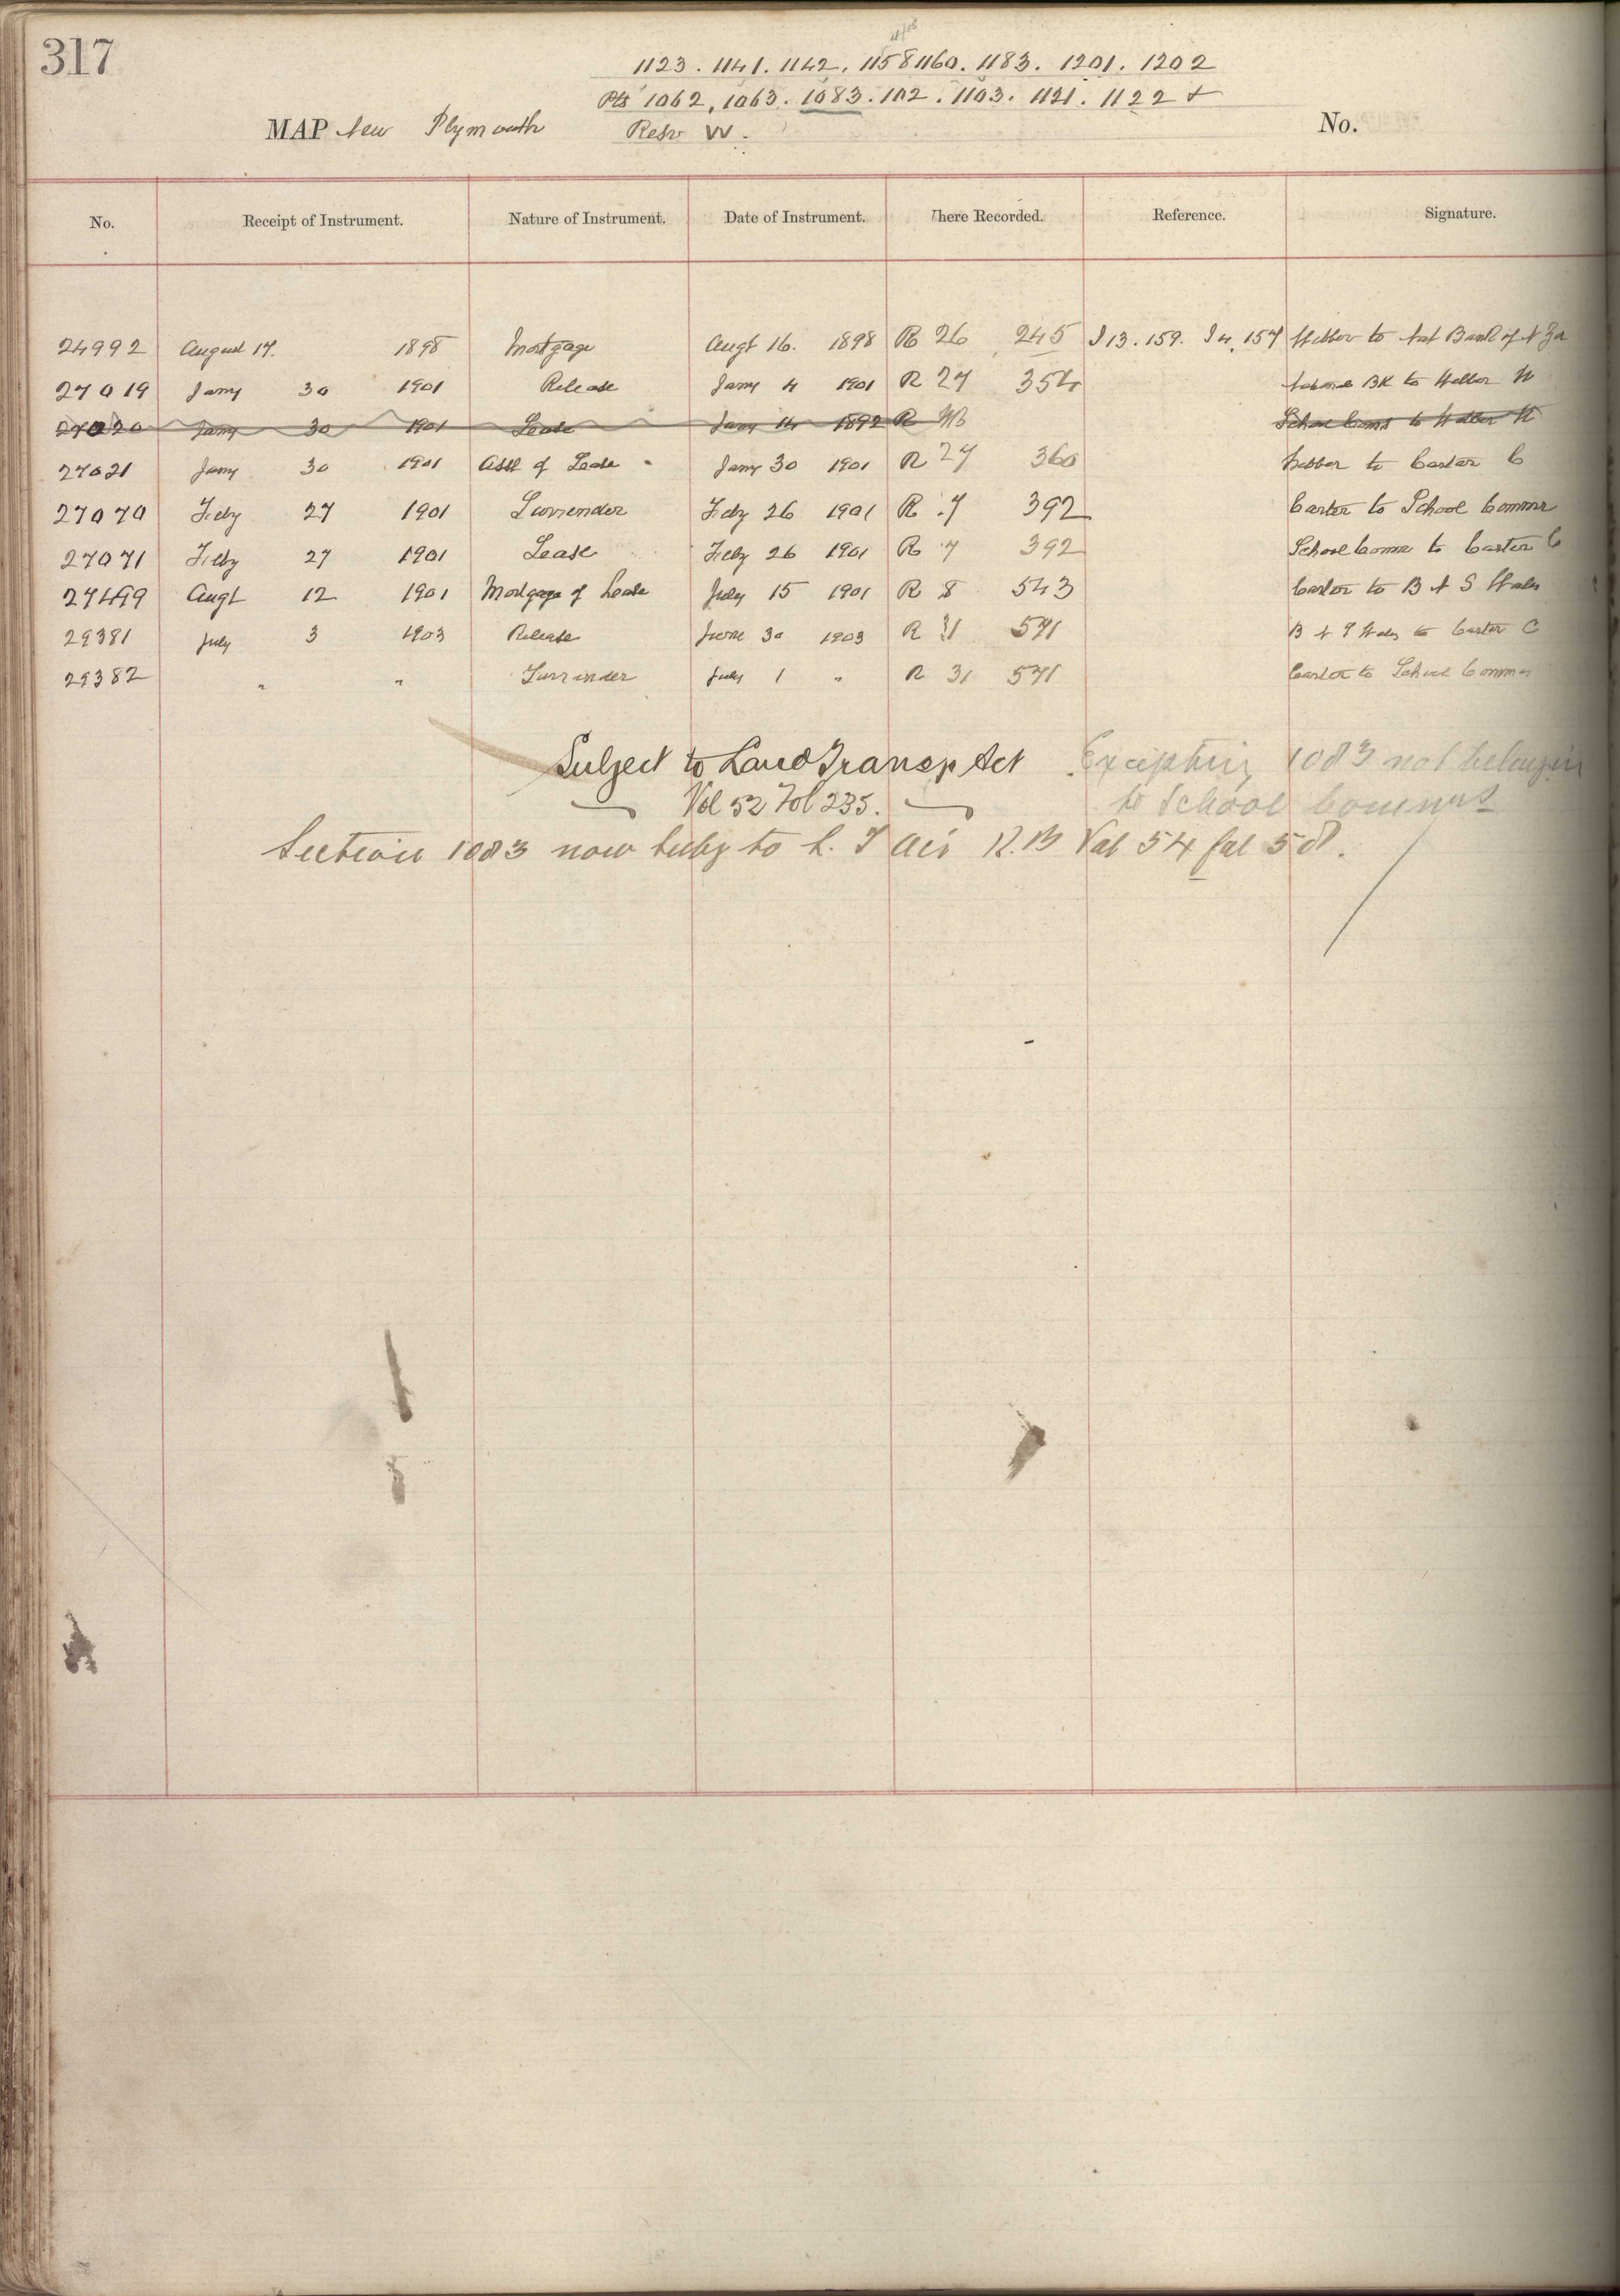 317
1123. 1141. 1142. 1158 1160. 1183. 1201. 1202
Pts 1062, 1063. 1083. 1102. 1103. 1121. 1122 &
MAP New Plymouth Resv W. No.
No. Receipt of Instrument. Nature of Instrument. Date of Instrument. here Recorded. Reference. Signature.
24992 August 17. 1898 Mortgage Augt 16. 1898 R 26 245 I 13. 159. I 4. 157 Webber to Nat Bank of N Za
27019 Jany 30 1901 Release Jany 4 1901 R 27 354 BK to Webber W
27020 Jany 30 1901 Lease Jany 14 1892 R School Coms to Webber W
27021 Jany 30 1901 Asst of Lease Jany 30 1901 R 27 360 Webber to Carter C
27070 Feby 27 1901 Surrender Feby 26 1901 R 7 392 Carter to School Commr
27071 Feby 27 1901 Lease Feby 26 1901 R 7 392 School Commr to Carter C
27499 Augt 12 1901 Mortgage of Lease July 15 1901 R 8 543 Carter to B N S Wales
29381 July 3 1903 Release June 30 1903 R 31 571 B N S Wales to Carter C
29382 " " Surrender July 1 " R 31 571 Carter to School Commrs
Subject to Land Transp Act Excepting 1083 not belongin
Vol 52 Fol 235. to School Commrs
Section 1083 now subj to L. T Act R.B Vol 54 fol 58.